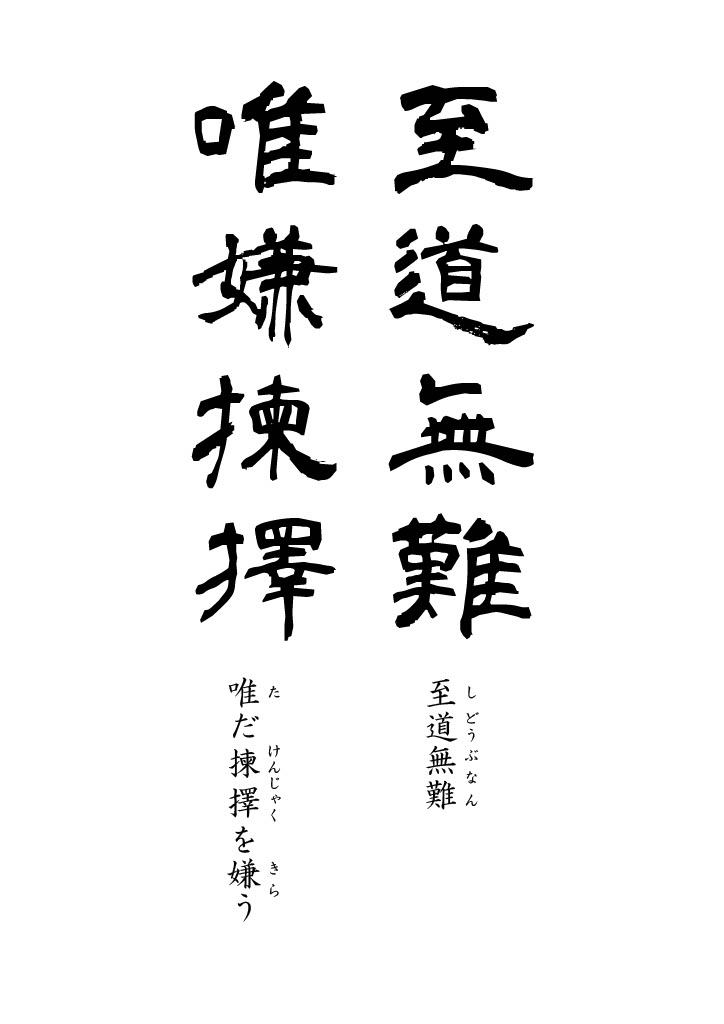 至道無難
唯嫌揀擇
至道無難
しどうぶなん
唯だ揀擇を嫌う
た けんじゃく きら